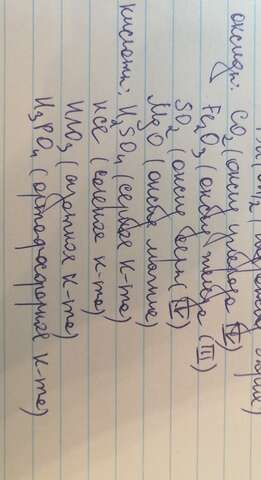 оксиды: CO₂ (оксид углерода IV)
Fe₂O₃ (оксид железа (III)
SO₂ (оксид серы (IV)
MgO (оксид магния)
кислоты: H₂SO₄ (серная к-та)
HCl (соляная к-та)
HNO₃ (азотная к-та)
H₃PO₄ (ортофосфорная к-та)